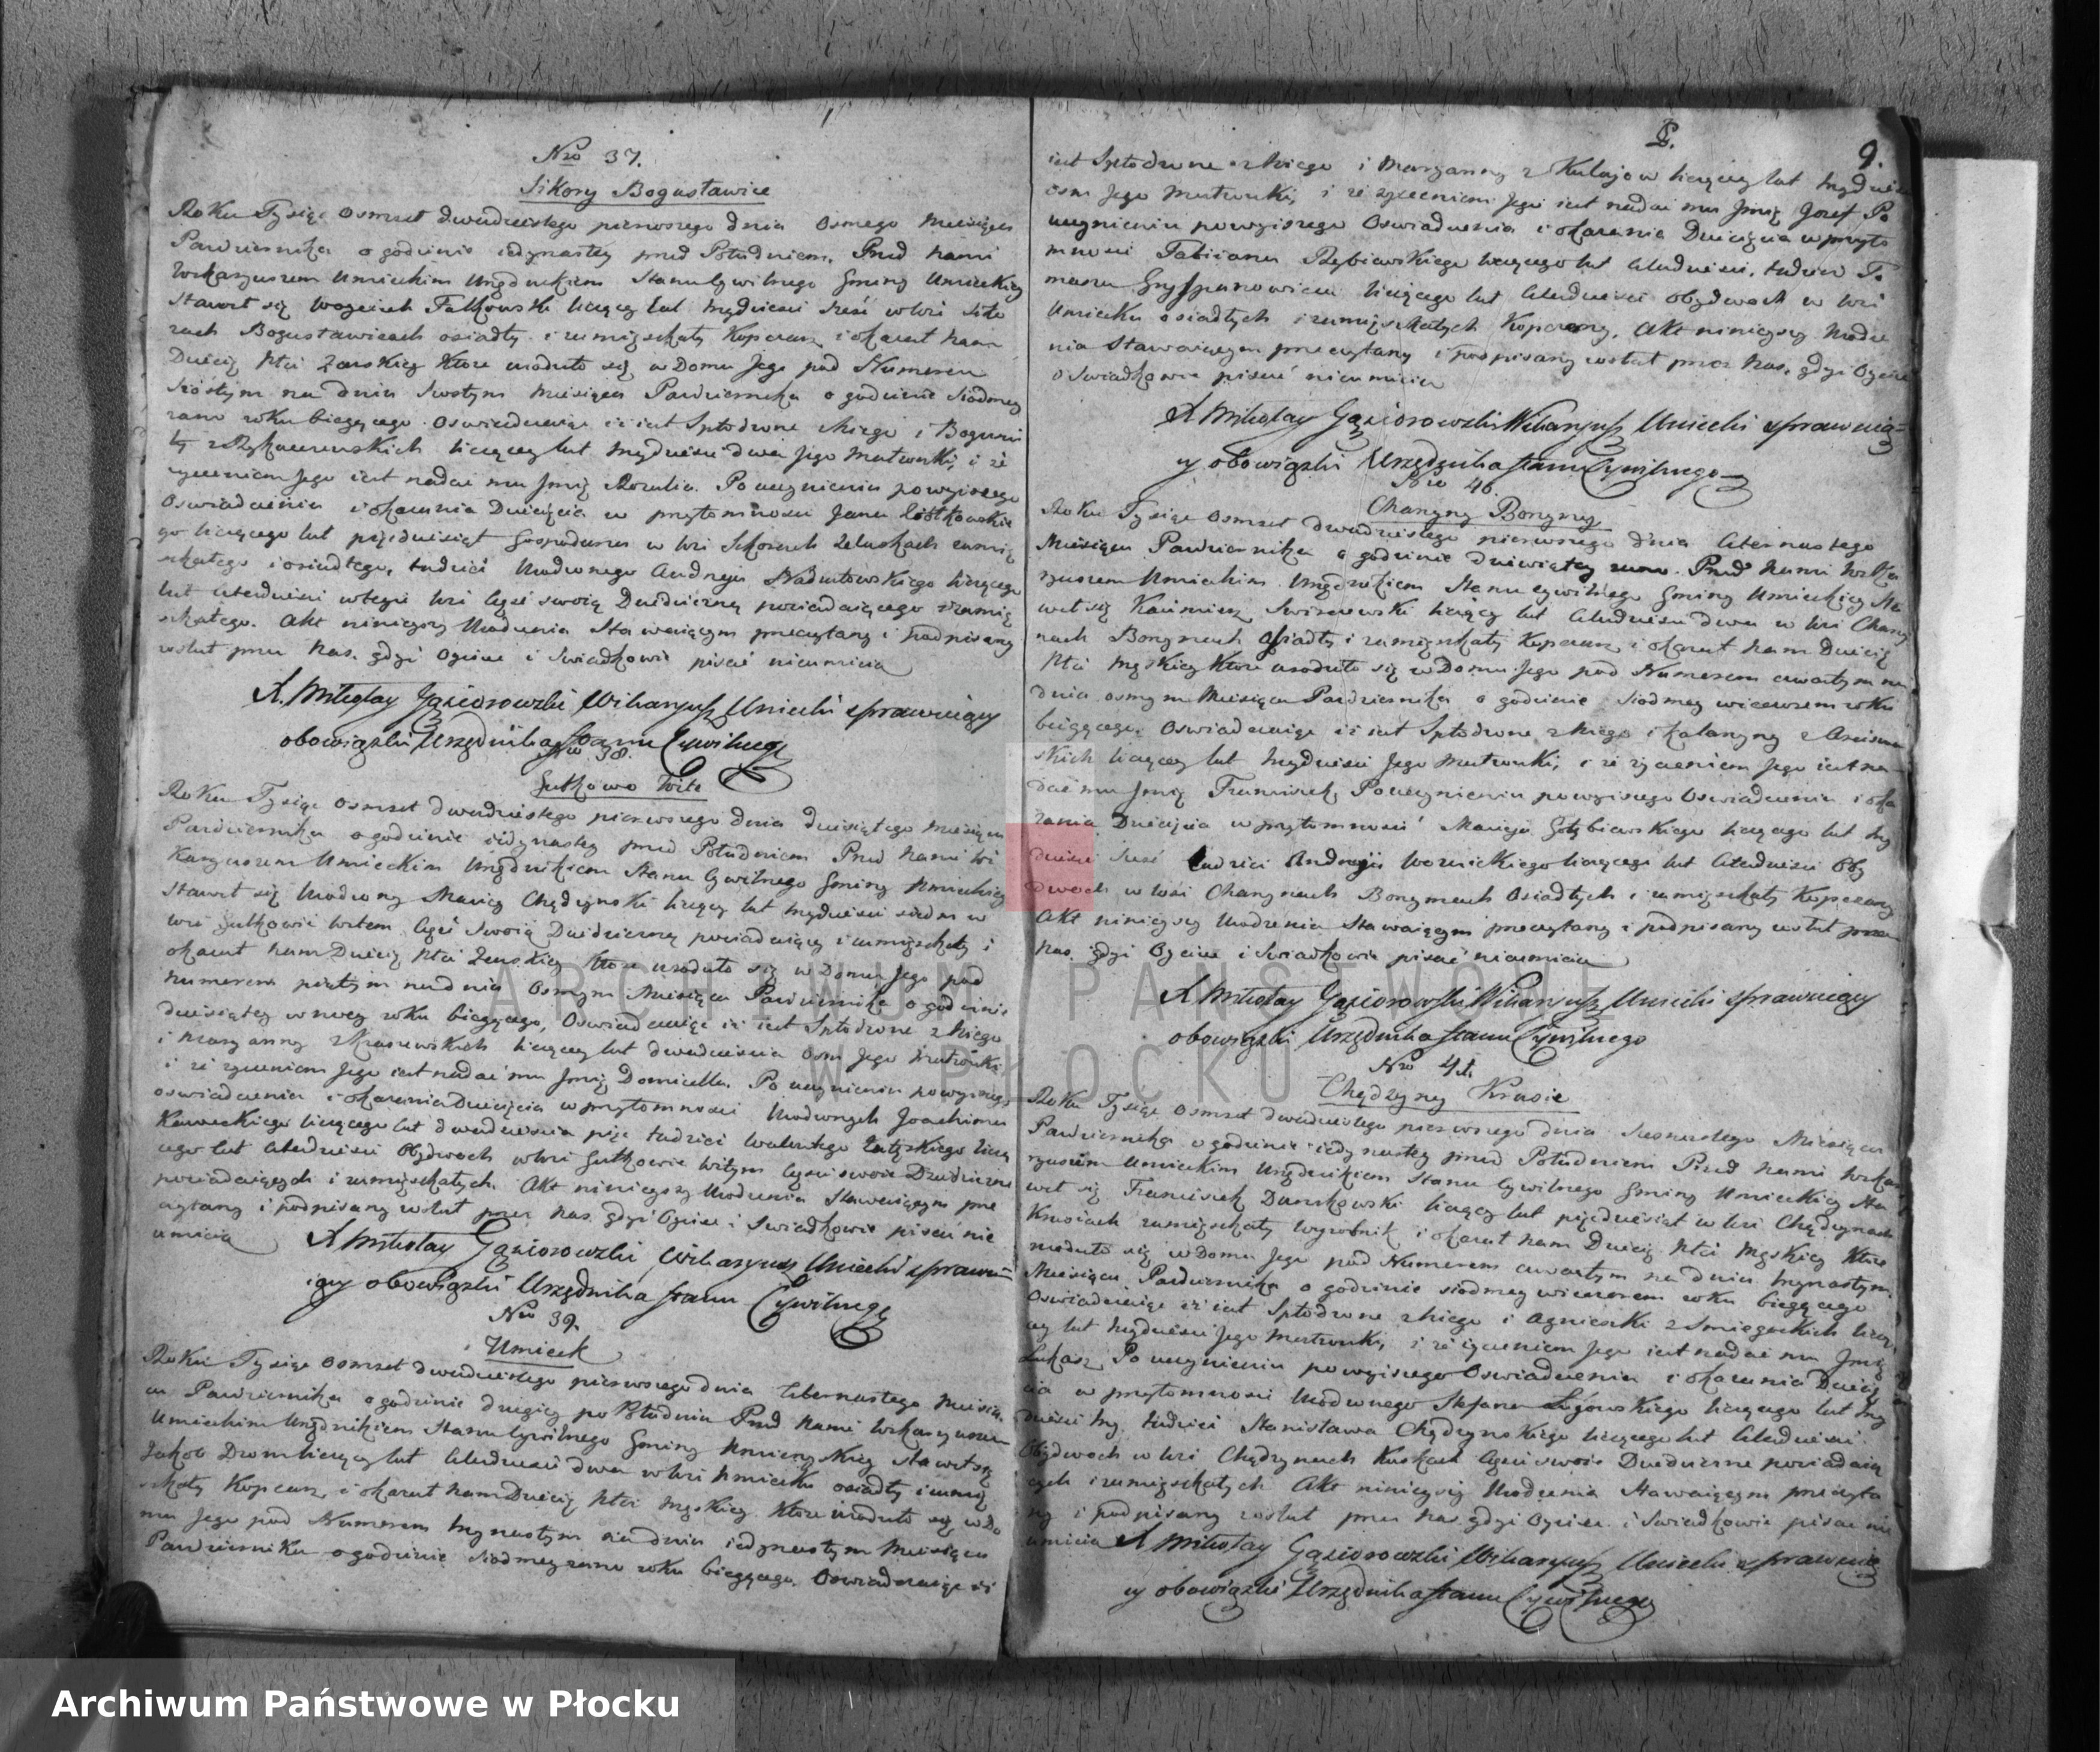 Nro 37.
Sikory Bogusławice
Roku Tysiąc osmset dwudziestego pierwszego dnia osmego Miesiąca
Pazdziernika o godzinie iedynastey przed Południem. Przed nami
Wikaryuszem Umieckim Urzędnikiem Stanu Cywilnego Gminy Umieckiey
Stawił się Woyciech Falkowski liczący lat trzydzieści sześć w wsi Siko
rach Bogusławicach osiadły i zamięszkały Kopczarz i okazał nam
Dziecię Płci Zenskiey które urodziło się w Domu Jego pod Numerem
szóstym na dniu szostym Miesiąca Pazdziernika o godzinie siodmey
rano roku bieżącego. Oswiadczaiąc iż iest Spłodzone z niego i Bogumi
ły z liczącey lat trzydzieści dwa Jego Małżonki, i że
życzeniem Jego iest nadać mu Jmię Rozalia. Po uczynieniu powyższego
Oswiadczenia i okazania Dziecięcia w przytomności Jana
go liczącego lat pięćdziesiąt Gospodarza w wsi Sikorach zamię
szkałego i osiadłego, tudzież Urodzonego Andrzeja Nadratowskiego liczącego
lat czterdzieści w teyże wsi Część swoią Dziedziczną posiadaiącego i zamię
szkałego. Akt ninieyszy Urodzenia Stawaiącym przeczytany i podpisany
został przez Nas, gdyż Oyciec i Swiadkowie pisać nieumieią
X. Mikołay Gąsiorowski Wikaryusz Umiecki sprawuiący
obowiązki Urzędnika Stanu Cywilnego
Nro 38.
Gutkowo Wite
Roku Tysiąc osmset dwudziestego pierwszego dnia dziesiątego Miesiąca
Pazdziernika o godzinie iedynastey przed Południem Przed Nami Wi
karyuszem Umieckim Urzędnikiem Stanu Cywilnego Gminy Umieckiey
Stawił się Urodzony Maciey Chędzyński liczący lat trzydzieści siedm w
wsi Gutkowie Witem Część Swoią Dziedziczną posiadaiący i zamięszkały i
okazał nam Dziecię Płci Zenskiey które urodziło się w Domu Jego pod
Numerem piątym na dniu Osmym Miesiąca Pazdziernika o godzinie
dziesiątey w nocy roku bieżącego, Oswiadczaiąc iż iest Spłodzone z Niego
i Maryanny z Kraszewskich liczącey lat dwadzieścia osm Jego Małżonki
i że życzeniem Jego iest nadać mu Jmię Domicella. Po uczynieniu powyższego
oswiadczenia i okazania Dziecięcia w przytomności Urodzonych Joachima
liczącego lat dwadzieścia pięć tudzież Walentego liczą
cego lat czterdzieści Obydwoch w wsi Gutkowie Witym Części swoie Dziedziczne
posiadaiących i zamięszkałych. Akt ninieyszy Urodzenia Stawaiącym prze
czytany i podpisany został przez Nas gdyż Oyciec i Swiadkowie pisać nie
umieią
X Mikołay Gąsiorowski Wikaryusz Umiecki sprawu
iący obowiązki Urzędnika Stanu Cywilnego
Nro 39.
Umieck
Roku Tysiąc osmset dwudziestego pierwszego dnia czternastego Miesią
ca Pazdziernika o godzinie drugiey po Południu Przed Nami Wikaryuszem
Umieckim Urzędnikiem Stanu Cywilnego Gminy Umieckiey Stawił się
Jakob liczący lat czterdzieści dwa w wsi Umiecku osiadły i zamię
szkały Kopczarz i okazał nam Dziecię Płci Męskiey które urodziło się w Do
mu Jego pod Numerem trzynastym na dniu iedynastym Miesiąca
Pazdziernika o godzinie siodmey rano roku bieżącego. Oswiadczaiąc iż
8. 9.
iest Spłodzone z Niego i Maryanny z liczącey lat trzydzieści
osm Jego Małżonki, i że życzeniem Jego iest nadać mu Jmię Jozef Po
uczynieniu powyższego Oswiadczenia i okazania Dziecięcia w przyto
mności Fabiiana liczącego lat czterdzieści, tudzież To
masza liczącego lat czterdzieści obydwoch w wsi
Umiecku osiadłych i zamięszkałych Kopczarzy. Akt ninieyszy Urodze
nia Stawaiącym przeczytany i podpisany został przez Nas, gdyż Oyciec
i Swiadkowie pisać nieumieią
X Mikołay Gąsiorowski Wikaryusz Umiecki sprawuią=
cy obowiązki Urzędnika Stanu Cywilnego
Nro 40.
Chanyny Bonyny
Roku Tysiąc osmset dwudziestego pierwszego dnia czternastego
Miesiąca Pazdziernika o godzinie dziewiątey rano. Przed Nami Wika
ryuszem Umieckim Urzędnikiem Stanu Cywilnego Gminy Umieckiey Sta
wił się Kazimierz liczący lat czterdzieści dwa w wsi Chany
nach Bonynach osiadły i zamięszkały Kopczarz i okazał nam Dziecię
Płci Męskiey które urodziło się w Domu Jego pod Numerem czwartym na
dniu osmym Miesiąca Pazdziernika o godzinie siodmey wieczorem roku
bieżącego, Oswiadczaiąc iż iest Spłodzone z Niego i Katarzyny
skich liczącey lat trzydzieści Jego Małżonki, i że życzeniem Jego iest na
dać mu Jmię Franciszek, Po uczynieniu powyższego Oswiadczenia i oka
zania Dziecięcia w przytomności Macieja Gołębiewskiego liczącego lat trzy
dzieści sześć tudzież Andrzeja Woznickiego liczącego lat czterdzieści Oby
dwoch w wsi Chanynach Bonynach Osiadłych i zamięszkałych Kopczarzy
Akt ninieyszy Urodzenia Stawaiącym przeczytany i podpisany został przez
Nas, gdyż Oyciec i Swiadkowie pisać nieumieią
X Mikołay Gąsiorowski Wikaryusz Umiecki sprawuiący
obowiązki Urzędnika Stanu Cywilnego
Nro 41.
Chędzyny Krusie
Roku Tysiąc osmset dwudziestego pierwszego dnia szesnastego Miesiąca
Pazdziernika o godzinie iedynastey przed Południem Przed Nami Wika
ryuszem Umieckim Urzędnikiem Stanu Cywilnego Gminy Umieckiey Sta
wił się Franciszek liczący lat pięćdziesiąt w wsi Chędzynach
zamięszkały Wyrobnik i okazał nam Dziecię Płci Męskiey które
urodziło się w domu Jego pod Numerem czwartym na dniu trzynastym
Miesiąca Pazdziernika o godzinie siodmey wieczorem roku bieżącego
Oswiadczaiąc iż iest Spłodzone z niego i Agnieszki z liczą
cey lat trzydzieści Jego Małżonki, i że życzeniem Jego iest nadać mu Jmię
Łukasz, Po uczynieniu powyższego Oswiadczenia i okazania Dziecię
cia w przytomności Urodzonego Stefana liczącego lat trzy
dzieści trzy, tudzież Stanisława Chędzyńskiego liczącego lat czterdzieści
Obydwoch w wsi Chędzynach Części swoie Dziedziczne posiadaią
cych i zamięszkałych Akt ninieyszy Urodzenia Stawaiącym przeczyta
ny i podpisany został przez Nas gdyż Oyciec i Swiadkowie pisać nie
umieią X Mikołay Gąsiorowski Wikaryusz Umiecki sprawuią
cy obowiązki Urzędnika Stanu Cywilnego
ARCHIWUM PAŃSTWOWE
W PŁOCKU
Archiwum Państwowe w Płocku